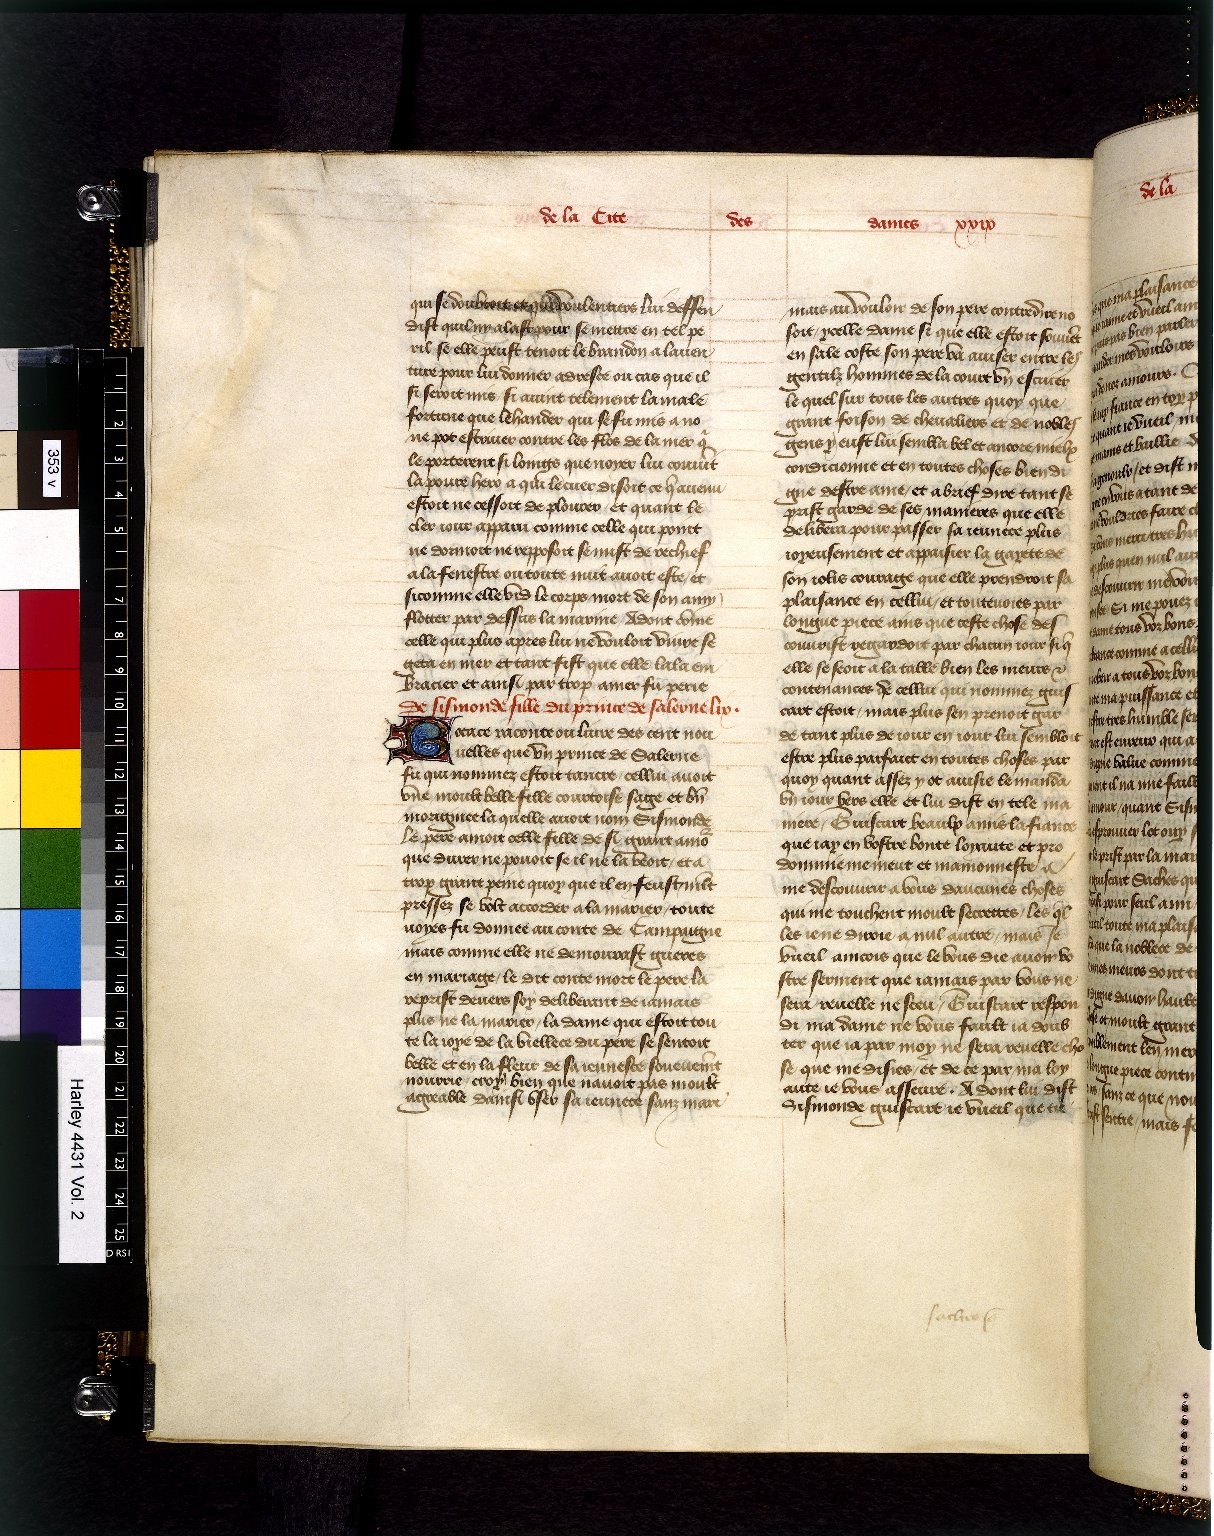 de la Cite des dames xxix
qui se doubtoit et qui voulentiers lui deffen
dist quil ny alast pour se mettre en tel pe
ril se elle peust tenoit le brandon a lauen
ture pour lui donner adresce ou cas que il
si seroit mis si auint telement la male
fortune que lehander qui se fu mis a no
ne pot estriuer contre les flos de la mer q̄
le porterent si loings que noyer lui couuīt
la poure hero a qui le cuer disoit ce q̄ auenu
estoit ne cessoit de plourer et quant le
cler iour apparu comme celle qui point
ne dormoit ne repposoit se mist de rechief
a la fenestre ou toute nuit auoit este / et
si comme elle vid le corps mort de son amy
flotter par dessus la marine Adont cōme
celle qui plus apres lui ne vouloit viure se
geta en mer et tant fist que elle lala em
bracier et ainsi par trop amer fu perie
De sismonde fille du prince de salerne lix.
Bocace raconte ou liure des cent nou
uelles que vn prince de Salerne
fu qui nommez estoit tancre / cellui auoit
vne moult belle fille courtoise sage et bn̄
morigenee la quelle auoit nom Sismonde
le pere amoit celle fille de si grant amo
que durer ne pouoit se il ne la veoit / et a
trop grant peine quoy que il en feust mlt
pressez se volt accorder a la marier / toute
uoyes fu donnee au conte de Campaigne
mais comme elle ne demourast gueres
en mariage / le dit conte mort le pere la
reprist deuers soy deliberant de iamais
plus ne la marier / la dame qui estoit tou
te la ioye de la viellece du pere se sentoit
belle et en la fleur de sa ieunesce souefuemt
nourrie / croy bien que nauoit pas moult
agreable dainsi vser sa ieunece sanz mari
mais au vouloir de son pere contredire no
soit / ycelle dame si que elle estoit souuēt
en sale coste son pere va auiser entre les
gentilz hommes de la court vn escuier
le quel sur tous les autres quoy que
grant foison de cheualiers et de nobles
gens y eust lui sembla bel et ancore mielx
condicionne et en toutes choses bien di
gne destre ame / et a brief dire tant se
prist garde de ses manieres que elle
delibera pour passer sa ieunece plus
ioyeusement et appaisier la gayete de
son iolis courage que elle prendroit sa
plaisance en cellui / et toutuoies par
longue piece ains que ceste chose des
couurist regardoit par chacun iour si q̄
elle se seoit a la table bien les meurs et
contenances de cellui qui nommez guis
cart estoit / mais plus sen prenoit gar
de tant plus de iour en iour lui sembloit
estre plus parfait en toutes choses par
quoy quant assez y ot auisie le manda
vn iour vers elle et lui dist en tele ma
niere / Guiscart beaulx amis la fiance
que iay en vostre bonte loyaute et pro
dommie me meut et mamonneste a
me descouurir a vous daucunes choses
qui me touchent moult secrettes / les q̄l
les ie ne diroie a nul autre / mais ie
vueil aincois que le vous die auoir vo
stre serment que iamais par vous ne
sera reuelle ne sceu / Guiscart respon
di ma dame ne vous fault ia doub
ter que ia par moy ne sera reuelle cho
se que me disies / et de ce par ma loy
aute ie vous asseure. Adont lui dist
Sismonde guiscart ie vueil que tu
saches q̄
de la
353 v
Harley 4431 Vol. 2
1
2
3
4
5
6
7
8
9
10
11
12
13
14
15
16
17
18
19
20
21
22
23
24
25